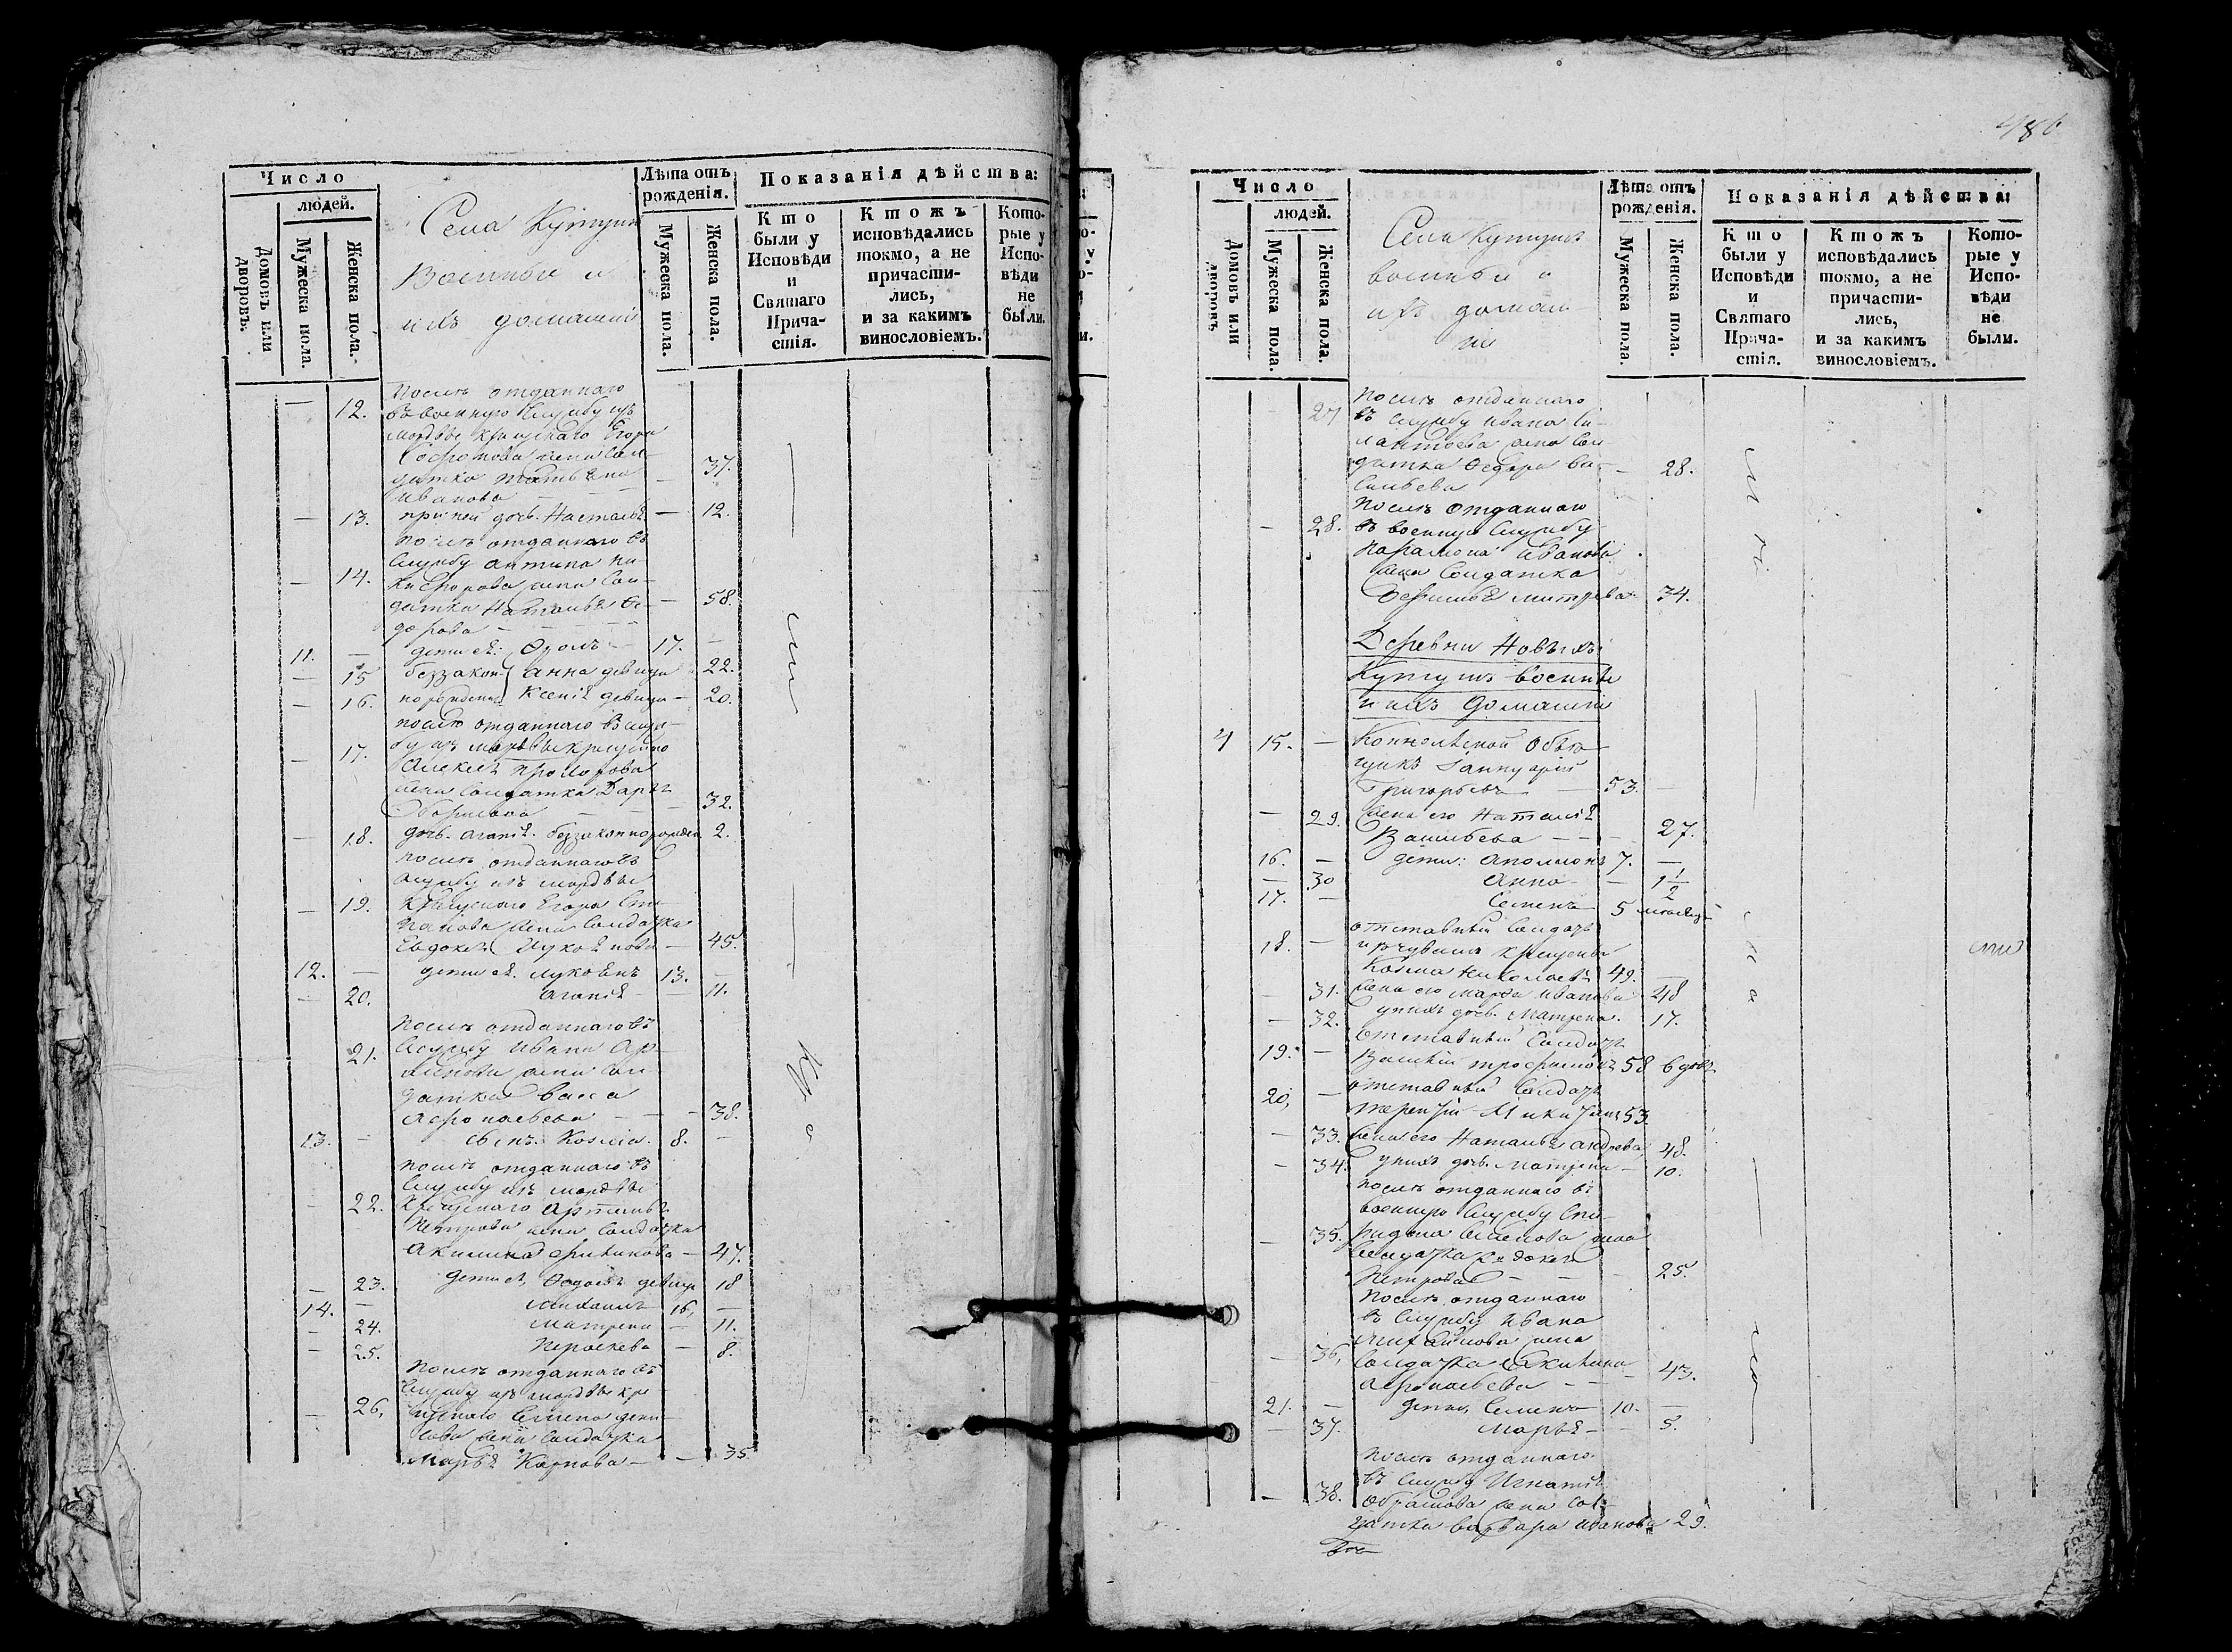 Число
людей.
Домовъ или дворовъ.
Мужеска пола.
Женска пола.
Села Кутуш
Военныя и
ихъ домашній
Лѣта отъ рожденія.
Мужеска пола.
Женска пола.
Показанія дѣйства:
Кто были у Исповѣди и Святаго Прича-стія.
Ктожъ исповѣдались токмо, а не причасти-лись, и за какимъ винословіемъ.
Кото-рые у Испо-вѣди не были.
послѣ отданнаго
— 12. въ военную службу изъ
мордвы крещенаго Егора
Софронова жена сол-
датка Татьяна — 37.
Иванова — —
— 13. при ней дочь Настасья — 12.
послѣ отданнаго въ
службу антипа Ни-
— 14. кифорова жена сол-
датка Наталья Ѳе- — 58.
дорова — — —
11. — дети ея: Ѳролъ 17. —
— 15 беззакон- анна девица 22.
— 16. порожден Ксенія девица — 20.
после отданнаго в служ-
— 17. бу изъ мордвы крещенаго
Алексея прохорова
жена солдатка Дарья
— 32.
— 18. дочь агафія беззаконнорожден 2.
послѣ отданнаго въ
службу изъ мордвы
— 19. крещенаго Егора Сте-
панова жена солдатка
Евдокея — 45.
12. — дети ея. 13. —
— 20. агафія — 11.
послѣ отданнаго въ
21. службу Ивана
жена сол-
датка васса
Афонасьева — — 38.
13. — сынъ Козма. 8. —
послѣ отданнаго въ
службу изъ мордвы
— 22. крещенаго Артемья
Петрова жена солдатка
Акилина — 47.
— 23. дети ея, Ѳедосья девица 18
14. — Михаилъ 16, —
— 24. Матрена — 11.
— 25. Просковья — 8.
послѣ отданнаго въ
службу изъ мордвы кре-
— 26, щенаго Семена дени-
сова жена солдатка
Марья Карпова — — 35
486
Число
людей.
Домовъ или дворовъ.
Мужеска пола.
Женска пола.
Села Кутуш
военныя и
ихъ домаш-
ніе
Лѣта отъ рожденія.
Мужеска пола.
Женска пола.
Показанія дѣйства:
Кто были у Исповѣди и Святаго Прича-стія.
Ктожъ исповѣдались токмо, а не причасти-лись, и за какимъ винословіемъ.
Кото-рые у Испо-вѣди не были.
послѣ отданнаго
27 въ службу Ивана Си-
лантьева жена сол-
датка Ѳедора Ва- — 28.
сильева
послѣ отданнаго
— 28. въ военную службу
парамона Иванова
жена солдатка
Ефимья митрева 34.
Деревни Новыхъ
Кутушъ военные
и ихъ домашни
4 15. — Коннолѣсной объѣз-
щикъ Іаннуарій
Григорьевъ — 53. —
— 29. жена его Наталія
Васильева — — 27.
16. — дети: Аполлонъ 7. —
— 30 Анна — 1 1/2
17. — Семенъ 5 месяцъ
отставный солдатъ
18. — изъ чувашъ крещены
Козма Николаевъ 49. —
— 31. жена его марфа Иванова 48
— 32. у нихъ дочь Матрена. 17.
отставный солдатъ
19. — Василій трофимовъ 58 вдовъ
отставный солдатъ
20, — терентій Никитин 53.
— 33. жена его Наталья андреева 48.
— 34. у нихъ дочь Матрена — 10.
послѣ отданнаго въ
военную службу Спи-
— 35. ридона Семенова жена
солдатка Евдокея
Петрова — — 25.
послѣ отданнаго
въ службу Ивана
Михайлова жена
— 36, солдатка Акилина
Афонасьева — — 43.
21. — дети, Семенъ 10. —
— 37. Марья — — 5.
послѣ отданнаго
въ службу Игнатія
— 38. Абрамова жена сол-
датка варвара Иванова 29.